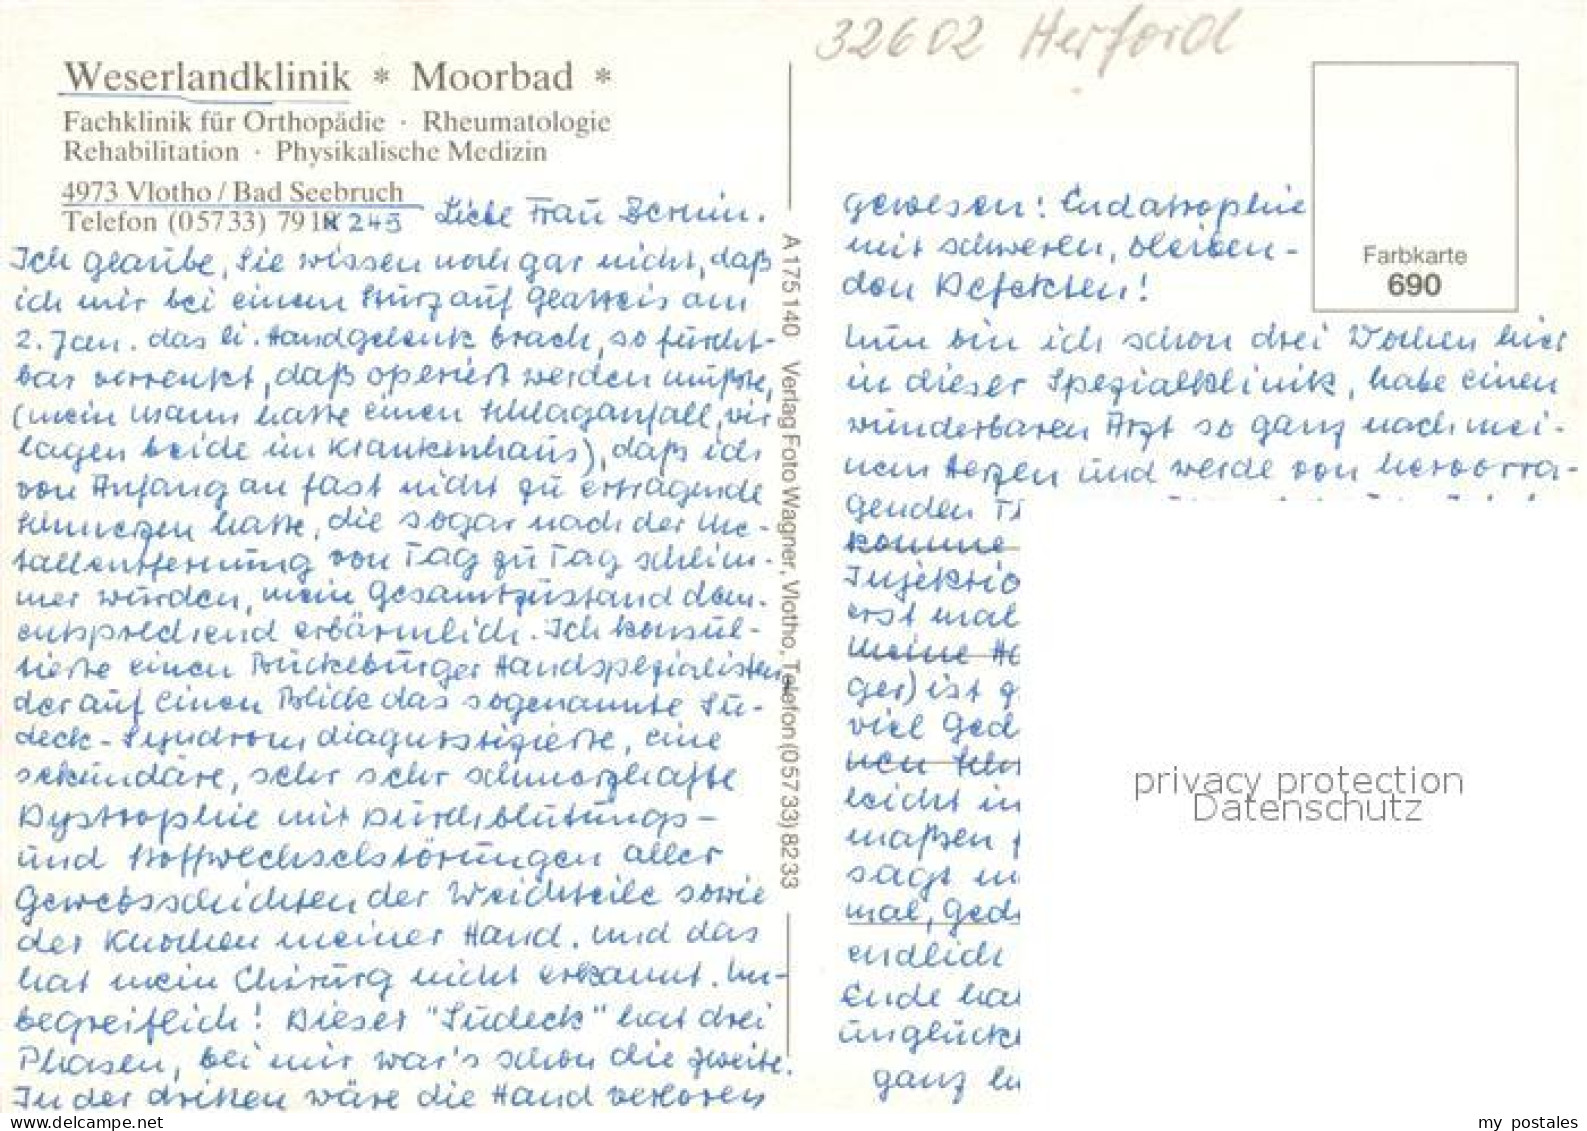 32602 Herford
Weserlandklinik * Moorbad *
Fachklinik für Orthopädie · Rheumatologie
Rehabilitation · Physikalische Medizin
4973 Vlotho / Bad Seebruch
Telefon (05733) 791 245
Liebe Frau
Ich glaube, Sie wissen noch gar nicht, daß
ich mir bei einem Sturz auf Glatteis am
2. Jan. das li. Handgelenk brach, so furcht-
bar verrenkt, daß operiert werden mußte,
(mein Mann hatte einen Schlaganfall, wir
lagen beide im Krankenhaus), daß ich
von Anfang an fast nicht zu ertragende
Schmerzen hatte, die sogar nach der Me-
tallentfernung von Tag zu Tag schlim-
mer wurden, mein Gesamtzustand dem-
entsprechend erbärmlich. Ich konsul-
tierte einen Bückeburger Handspezialisten,
der auf einen Blick das sogenannte Su-
deck-Syndrom diagnostizierte, eine
sekundäre, sehr sehr schmerzhafte
Dystrophie mit Durchblutungs-
und Stoffwechselstörungen aller
Gewebsschichten der Weichteile sowie
der Knochen meiner Hand. Und das
hat mein Chirurg nicht erkannt. Un-
begreiflich! Dieser "Sudeck" hat drei
Phasen, bei mir war's schon die zweite.
In der dritten wäre die Hand verloren
A 175 140 Verlag Foto Wagner, Vlotho, Telefon (05733) 8233
gewesen: Endatrophie
mit schweren, bleiben-
den Defekten!
Nun bin ich schon drei Wochen hier
in dieser Spezialklinik, habe einen
wunderbaren Arzt so ganz nach mei-
nem Herzen und werde von hervorra-
genden
komme
Injektio
erst mal
meine
ger) ist
viel Ged
nen
leicht in
maßen
sagt
mal, Ged
endlich
Ende
unglück
ganz
Farbkarte
690
privacy protection
Datenschutz
www.delcampe.net
my_postales